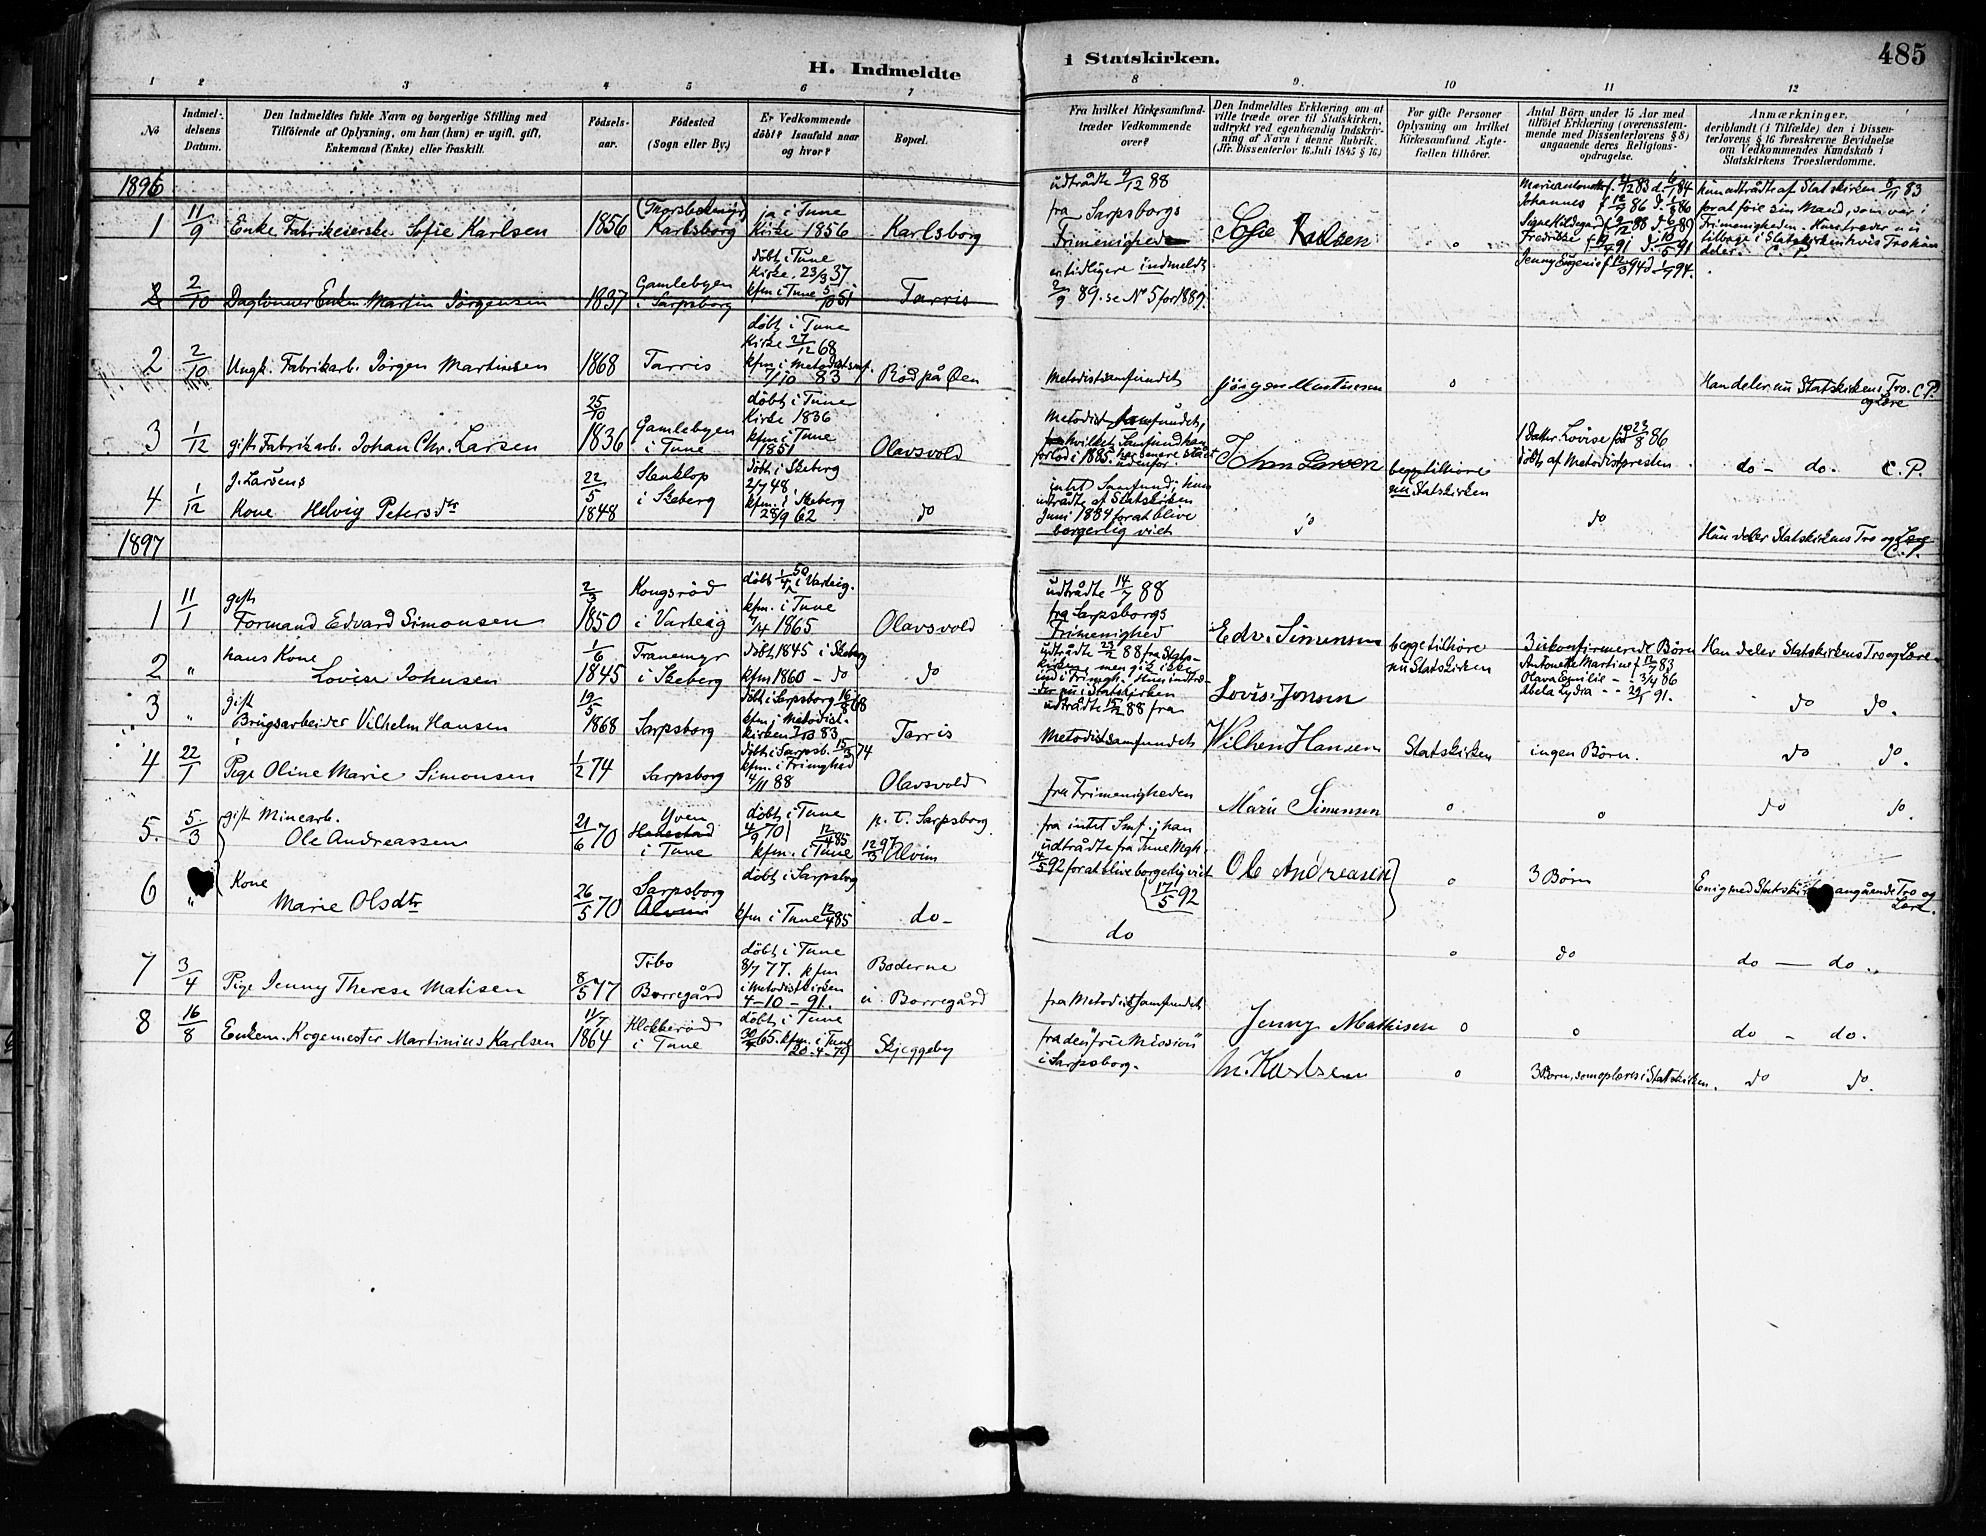 H. Indmeldte i Statskirken.
485
1 2 3 4 5 6 7 8 9 10 11 12
No
Indmel-
delsens
Datum.
Den Indmeldtes fulde Navn og borgerlige Stilling med
Tilføiende af Oplysning, om han (hun) er ugift, gift,
Enkemand (Enke) eller fraskilt.
Fødsels-
aar.
Fødested
(Sogn eller By.)
Er Vedkommende
døbt? Isaafald naar
og hvor?
Bopæl.
Fra hvilket Kirkesamfund
træder Vedkommende
over?
Den Indmeldtes Erklæring om at
ville træde over til Statskirken,
udtrykt ved egenhændig Indskriv-
ning af Navn i denne Rubrik.
(Jfr. Dissenterlov 16 Juli 1845 § 16.)
For gifte Personer
Oplysning om hvilket
Kirkesamfund Ægte-
fællen tilhører.
Antal Børn under 15 Aar med
tilføiet Erklæring (overensstem-
mende med Dissenterlovens § 8)
angaaende deres Religions-
opdragelse.
Anmærkninger,
deriblandt (i Tilfælde) den i Dissen-
terlovens § 16 foreskrevne Bevidnelse
om Vedkommendes Kundskab i
Statskirkens Troeslærdomme.
1896
1
11/9
Enke Fabrikeierske Sofie Karlsen
1856
Karlsborg
ja i Tune
Kirke 1856
Karlsborg
udtrådte 9/12 88
fra Sarpsborgs
Frimenighed
Sofie Karlsen
o
Johannes
Fredrikke
Hun udtrådte af Statskirken 8/11 83
for at føie sin Mand, som var i
Frimenigheden. Hun træder nu
tilbage i Statskirken hvis Tro hun
deler. C. P.
2
2/10
Daglønner Enkem. Martin Jørgensen
1837
Gamlebyen
i Sarpsborg
døbt i Tune
Kirke 23/3 37
kfm i Tune 5/10 51
Tarris
er tidligere indmeldt
2/9 89. se No 5 for 1889.
2
2/10
Ungk. Fabrikarb. Jørgen Martinsen
1868
Tarris
døbt i Tune
Kirke 27/12 68
kfm i Metodistsmf.
7/10 83
Rød på Øen
Metodistsamfundet
Jørgen Martinsen
o
Han deler nu Statskirkens Tro. C.P.
og Lære
3
1/12
gift Fabrikarb. Johan Chr. Larsen
25/10
1836
Gamlebyen
i Tune
døbt i Tune
Kirke 1836
kfm i Tune
1851
Olavsvold
Metodistsamfundet,
hvilket Samfund han
forlod i 1885. har senere stået
udenfor.
Johan Larsen
begge tilhøre
nu Statskirken
1 Datter Lovise fød 23/8 86
døbt af Metodistpresten
do - do. C. P.
4
1/12
J. Larsens
Kone Helvig Petersdtr
22/5
1848
Stenklop
i Skeberg
døbt i Skeberg
2/7 48.
kfm. i Skeberg
28/9 62
do
intet Samfund; hun
udtrådte af Statskirken
Juni 1884 for at blive
borgerlig viet
do
do
Hun deler Statskirkens Tro og Lære
C. P.
1897
1
11/1
gift
Formand Edvard Simonsen
2/3
1850
Kongsrød
i Varteig
døbt 1/4 50 i Varteig.
kfm. i Tune
1865
Olavsvold
udtrådte 14/7 88
fra Sarpsborgs
Frimenighed
Edv. Simensen
begge tilhøre
nu Statskirken
3 ukonfirmerede Børn
Antonette Martine f 11/7 83
Olava Emilie - 3/4 86
Abela Lydia - - 29/5 91.
Han deler Statskirkens Tro og Lære
2
"
hans Kone
Lovise Johnsen
1/6
1845
Tranemyr
i Skeberg
døbt 1845 i Skeberg
kfm 1860 - do
do
udtrådte 23/2 88 fra Stats-
kirken, men gik ikke
ind i Frimgh. Hun indtræ-
der nu i Statskirken
Lovise Jonsen
do do.
3
"
gift
Brugsarbeider Vilhelm Hansen
19/5
1868
Sarpsborg
døbt i Sarpsborg 16/8 68
kfm i Metodist-
kirken 83
Tarris
udtrådte 15/2 88 fra
Metodistsamfundet
Wilhem Hansen
Statskirken
ingen Børn.
do do.
4
22/1
Pige Oline Marie Simonsen
1/2 74
Sarpsborg
døbt i Sarpsb. 15/3 74
kfm. i Frimghed
4/11 88
Olavsvold
fra Frimenigheden
Marie Simensen
o
o
do do.
5.
5/3
gift Minearb.
Ole Andreassen
21/6 70
Yven
Hafrestad
i Tune
døbt i Tune
4/9 70
kfm. i Tune 12/4 85
p. t. Sarpsborg.
12/3 97 Alvim
fra intet Smf.; han
udtrådte fra Tune Mgh.
14/5 92 for at blive borgerlig viet
(17/5 92
Ole Andreasen
o
3 Børn
Enig med Statskirken angående Tro og
Lære.
6
"
Kone
Marie Olsdtr
26/5 70
Sarpsborg
Alvim
døbt i Sarpsborg
kfm i Tune 12/4 85
do -
do
o
do
do - do.
7
3/4
Pige Jenny Therese Matisen
8/5 77
Tibo
Borregård
døbt i Tune
8/7 77. kfm
i Metodistkirken
4-10-91.
Boderne
u. Borregård
fra Metodistsamfundet
Jenny Mathisen
o
o
do - do.
8
16/8
Enkem. Kogemester Martinius Karlsen
11/7
1864
Klokkerød
i Tune
døbt i Tune
65. kfm. i Tune
20-4-79
Skjeggeby
fra den "frie Mission"
i Sarpsborg.
M. Karlsen
o
3 Børn, som oplæres i Statskirken.
do do.